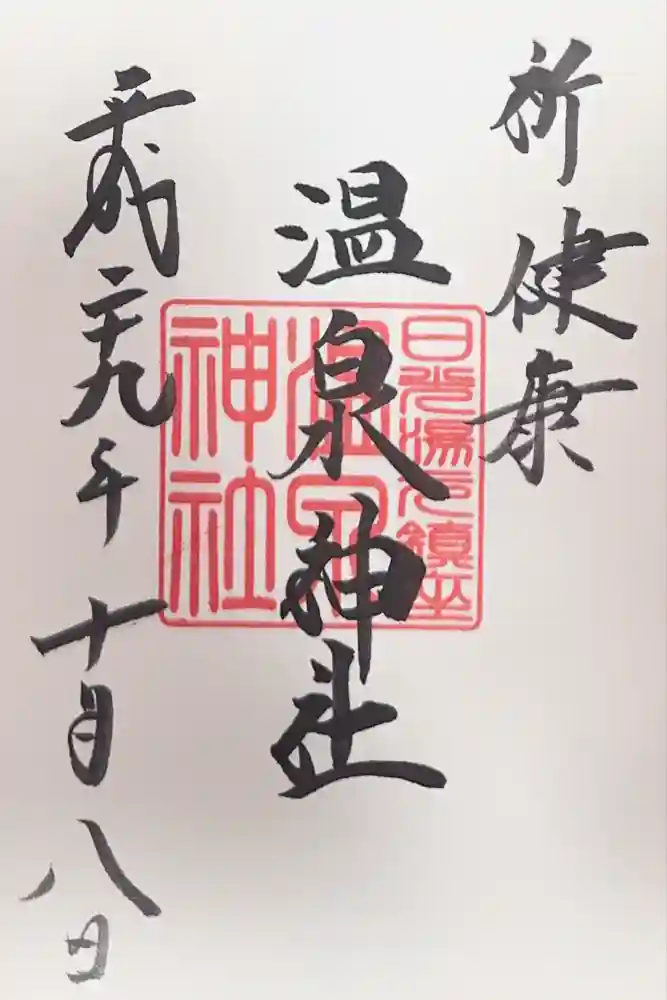 祈健康
温泉神社
日光湯元鎮座
温泉神社
平成二十九年十月八日